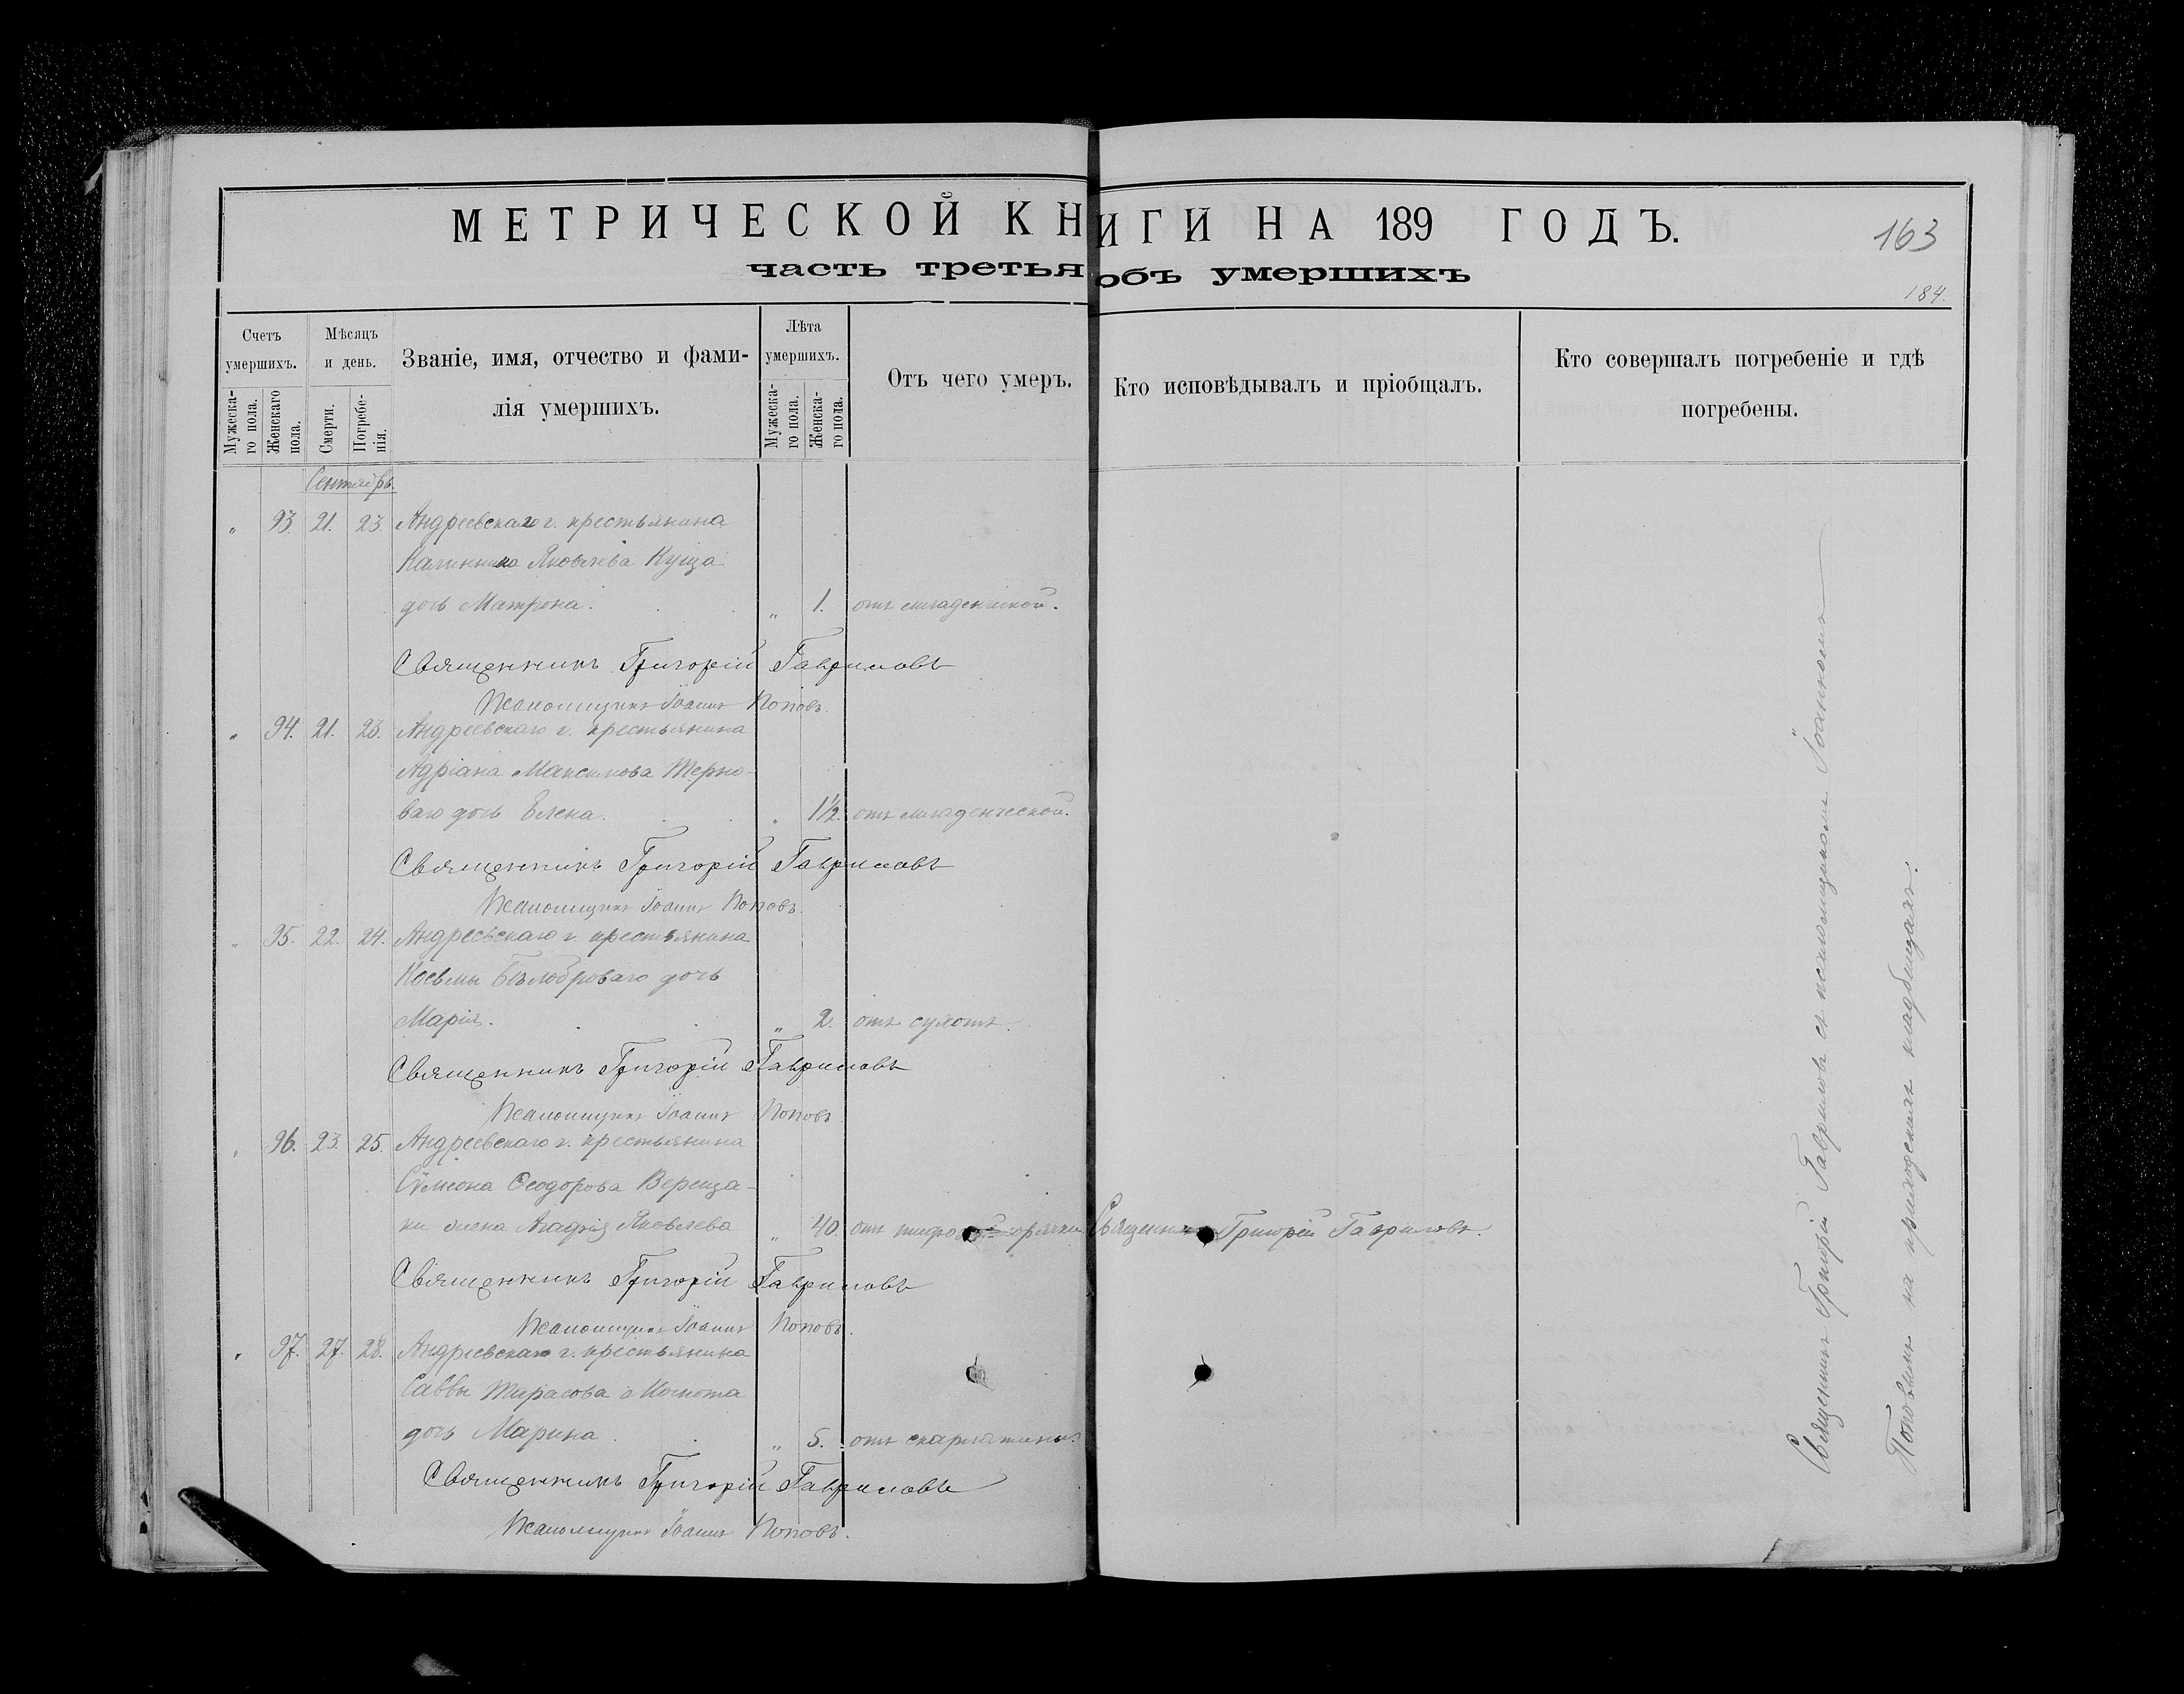 МЕТРИЧЕСКОЙ КНИГИ НА 189 ГОДЪ.
163
часть третья объ умершихъ
184.
Счетъ умершихъ.
Мужескаго пола.
Женскаго пола.
Мѣсяцъ и день.
Смерти.
Погребенія.
Званіе, имя, отчество и фамилія умершихъ.
Лѣта умершихъ.
Мужескаго пола.
Женскаго пола.
Отъ чего умеръ.
Кто исповѣдывалъ и пріобщалъ.
Кто совершалъ погребеніе и гдѣ погребены.
Сентябрь.
„ 93. 21. 23. Андреевскаго г. крестьянина
Калинника Яковлева Куща
дочь Матрона. „ 1. отъ младенческой.
Священникъ Григорій Гавриловъ
Псаломщикъ Іоаннъ Поповъ.
„ 94. 21. 23. Андреевскаго г. крестьянина
Адріана Максимова Терно-
ваго дочь Елена. „ 1½. отъ младенческой.
Священникъ Григорій Гавриловъ
Псаломщикъ Іоаннъ Поповъ.
„ 95. 22. 24. Андреевскаго г. крестьянина
Косьмы Бѣлоброваго дочь
Марія. „ 2. отъ сухотъ.
Священникъ Григорій Гавриловъ
Псаломщикъ Іоаннъ Поповъ
„ 96. 23. 25. Андреевскаго г. крестьянина
Сѵмеона Ѳеодорова Вереща-
ки жена Агафія Яковлева „ 40. отъ горячки Священникъ Григорій Гавриловъ.
Священникъ Григорій Гавриловъ
Псаломщикъ Іоаннъ Поповъ.
„ 97. 27. 28. Андреевскаго г. крестьянина
Саввы Тарасова Момота
дочь Марина. „ 5. отъ скарлатины.
Священникъ Григорій Гавриловъ
Псаломщикъ Іоаннъ Поповъ.
Священникъ Григорій Гавриловъ съ псаломщикомъ Іоанномъ
Поповымъ на приходскихъ кладбищахъ.